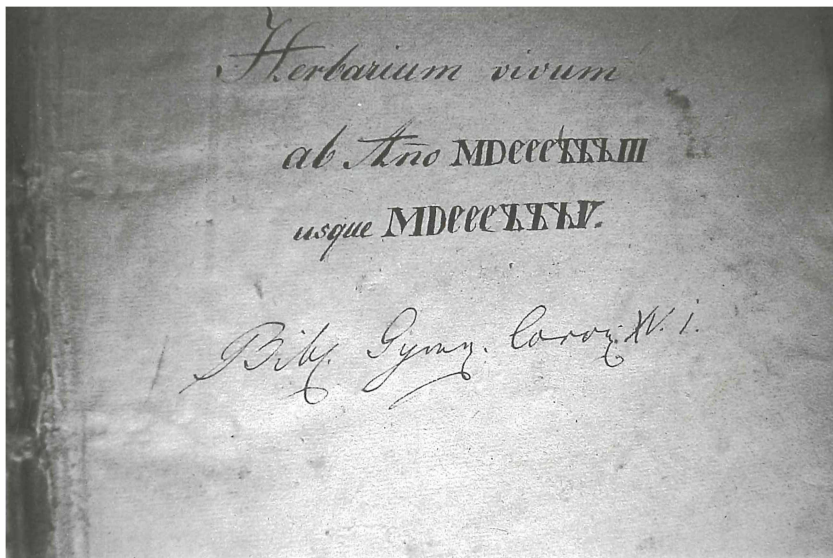 Herbarium vivum
ab Año MDCCCXXXIII
usque MDCCCXXXV.
Bibl. Gymn. Coron. XV. i.